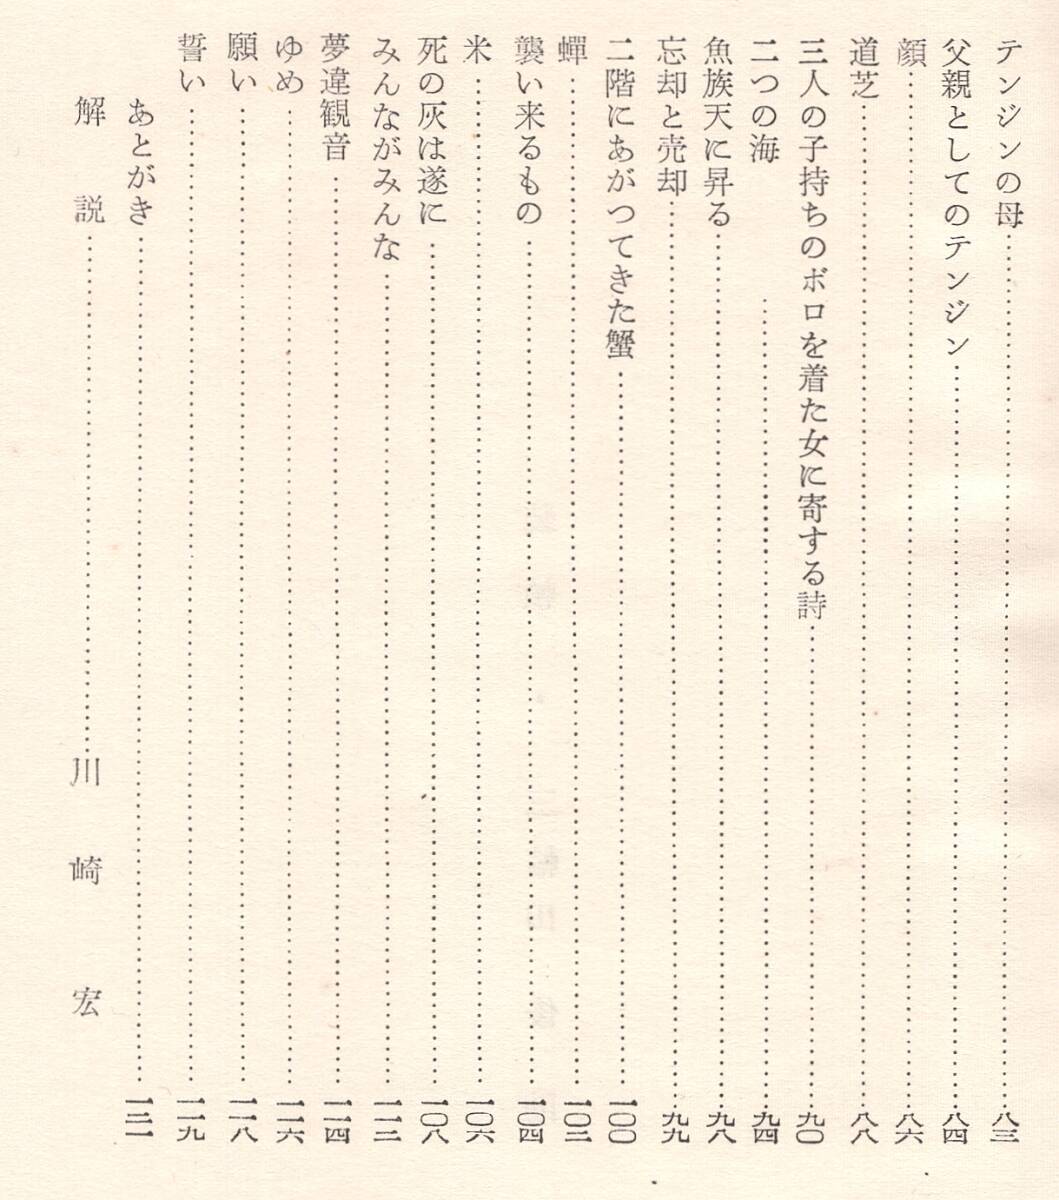 テンジンの母……八三
父親としてのテンジン……八四
顔……八六
道芝……八八
三人の子持ちのボロを着た女に寄する詩……九〇
二つの海……九四
魚族天に昇る……九八
忘却と売却……九九
二階にあがつてきた蟹……一〇〇
蟬……一〇二
襲い来るもの……一〇四
米……一〇六
死の灰は遂に……一〇八
みんながみんな……一一二
夢違観音……一一四
ゆめ……一一六
願い……一一八
誓い……一一九
あとがき……一二一
解説……川崎宏